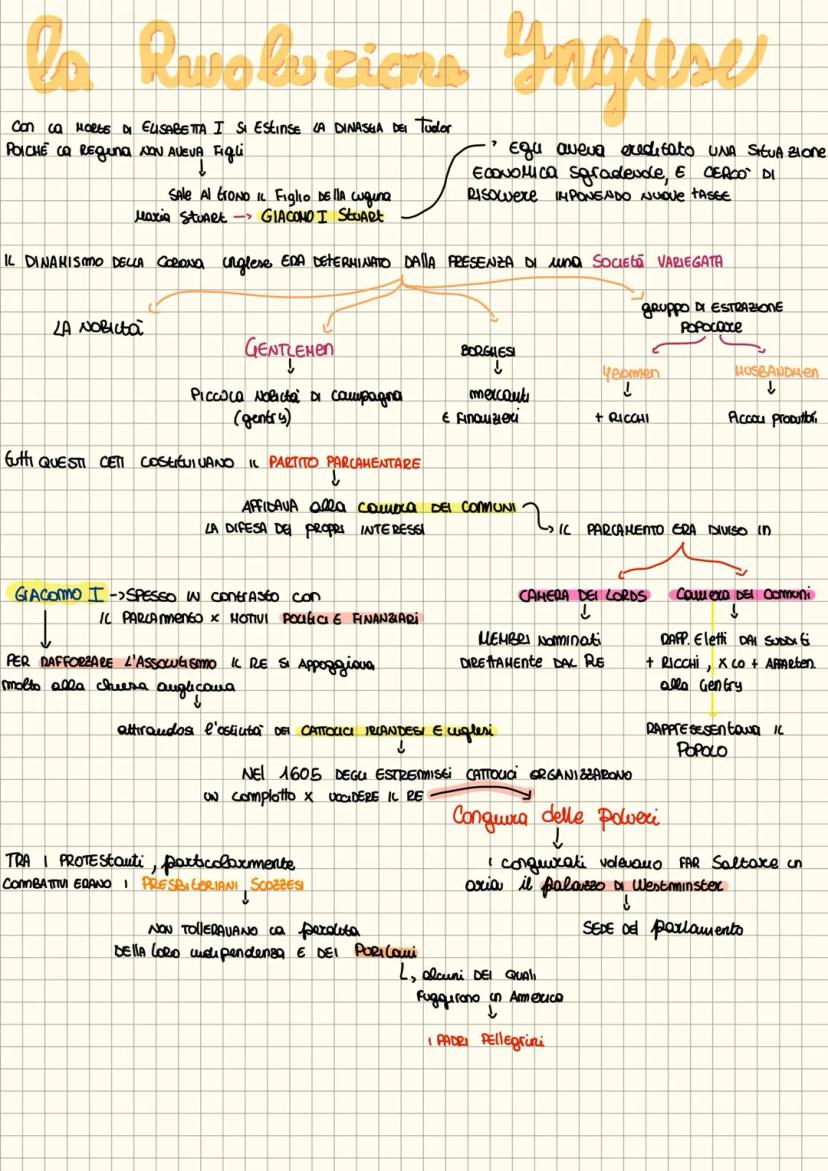 la Rivoluzione Inglese
Con la morte di Elisabetta I si estinse la dinastia dei Tudor
poiché la regina non aveva figli
↓
sale al trono il figlio della cugina
Maria Stuart -> GIACOMO I STUART
Egli aveva ereditato una situazione
economica sgradevole, e cercò di
risolvere imponendo nuove tasse
Il dinamismo della corona inglese era determinato dalla presenza di una società variegata
LA NOBILTÀ
GENTLEMEN
↓
Piccola nobiltà di campagna
(gentry)
BORGHESI
↓
mercanti
e finanzieri
gruppo di estrazione
popolare
Yeomen
↓
+ RICCHI
HUSBANDMEN
↓
Piccoli produttori
tutti questi ceti costituivano il PARTITO PARLAMENTARE
↓
affidava alla camera dei comuni
la difesa dei propri interessi
il parlamento era diviso in
CAMERA DEI LORDS
↓
membri nominati
direttamente dal re
Camera dei comuni
↓
rapp. eletti dai sudditi
+ ricchi, x lo + apparten.
alla Gentry
rappresesentava il
popolo
GIACOMO I -> spesso in contrasto con
il parlamento x motivi politici e finanziari
per rafforzare l'assolutismo il re si appoggiava
molto alla chiesa anglicana
↓
attirandosi l'ostilità dei cattolici irlandesi e inglesi
↓
Nel 1605 degli estremisti cattolici organizzarono
un complotto x uccidere il re
Congiura delle Polveri
↓
i congiurati volevano far saltare in
aria il palazzo di Westminster
↓
sede del parlamento
Tra i protestanti, particolarmente
combattivi erano i PRESBITERIANI SCOZZESI
↓
Non tolleravano la perdita
della loro indipendenza e dei Puritani
alcuni dei quali
fuggirono in America
↓
i PADRI PELLEGRINI